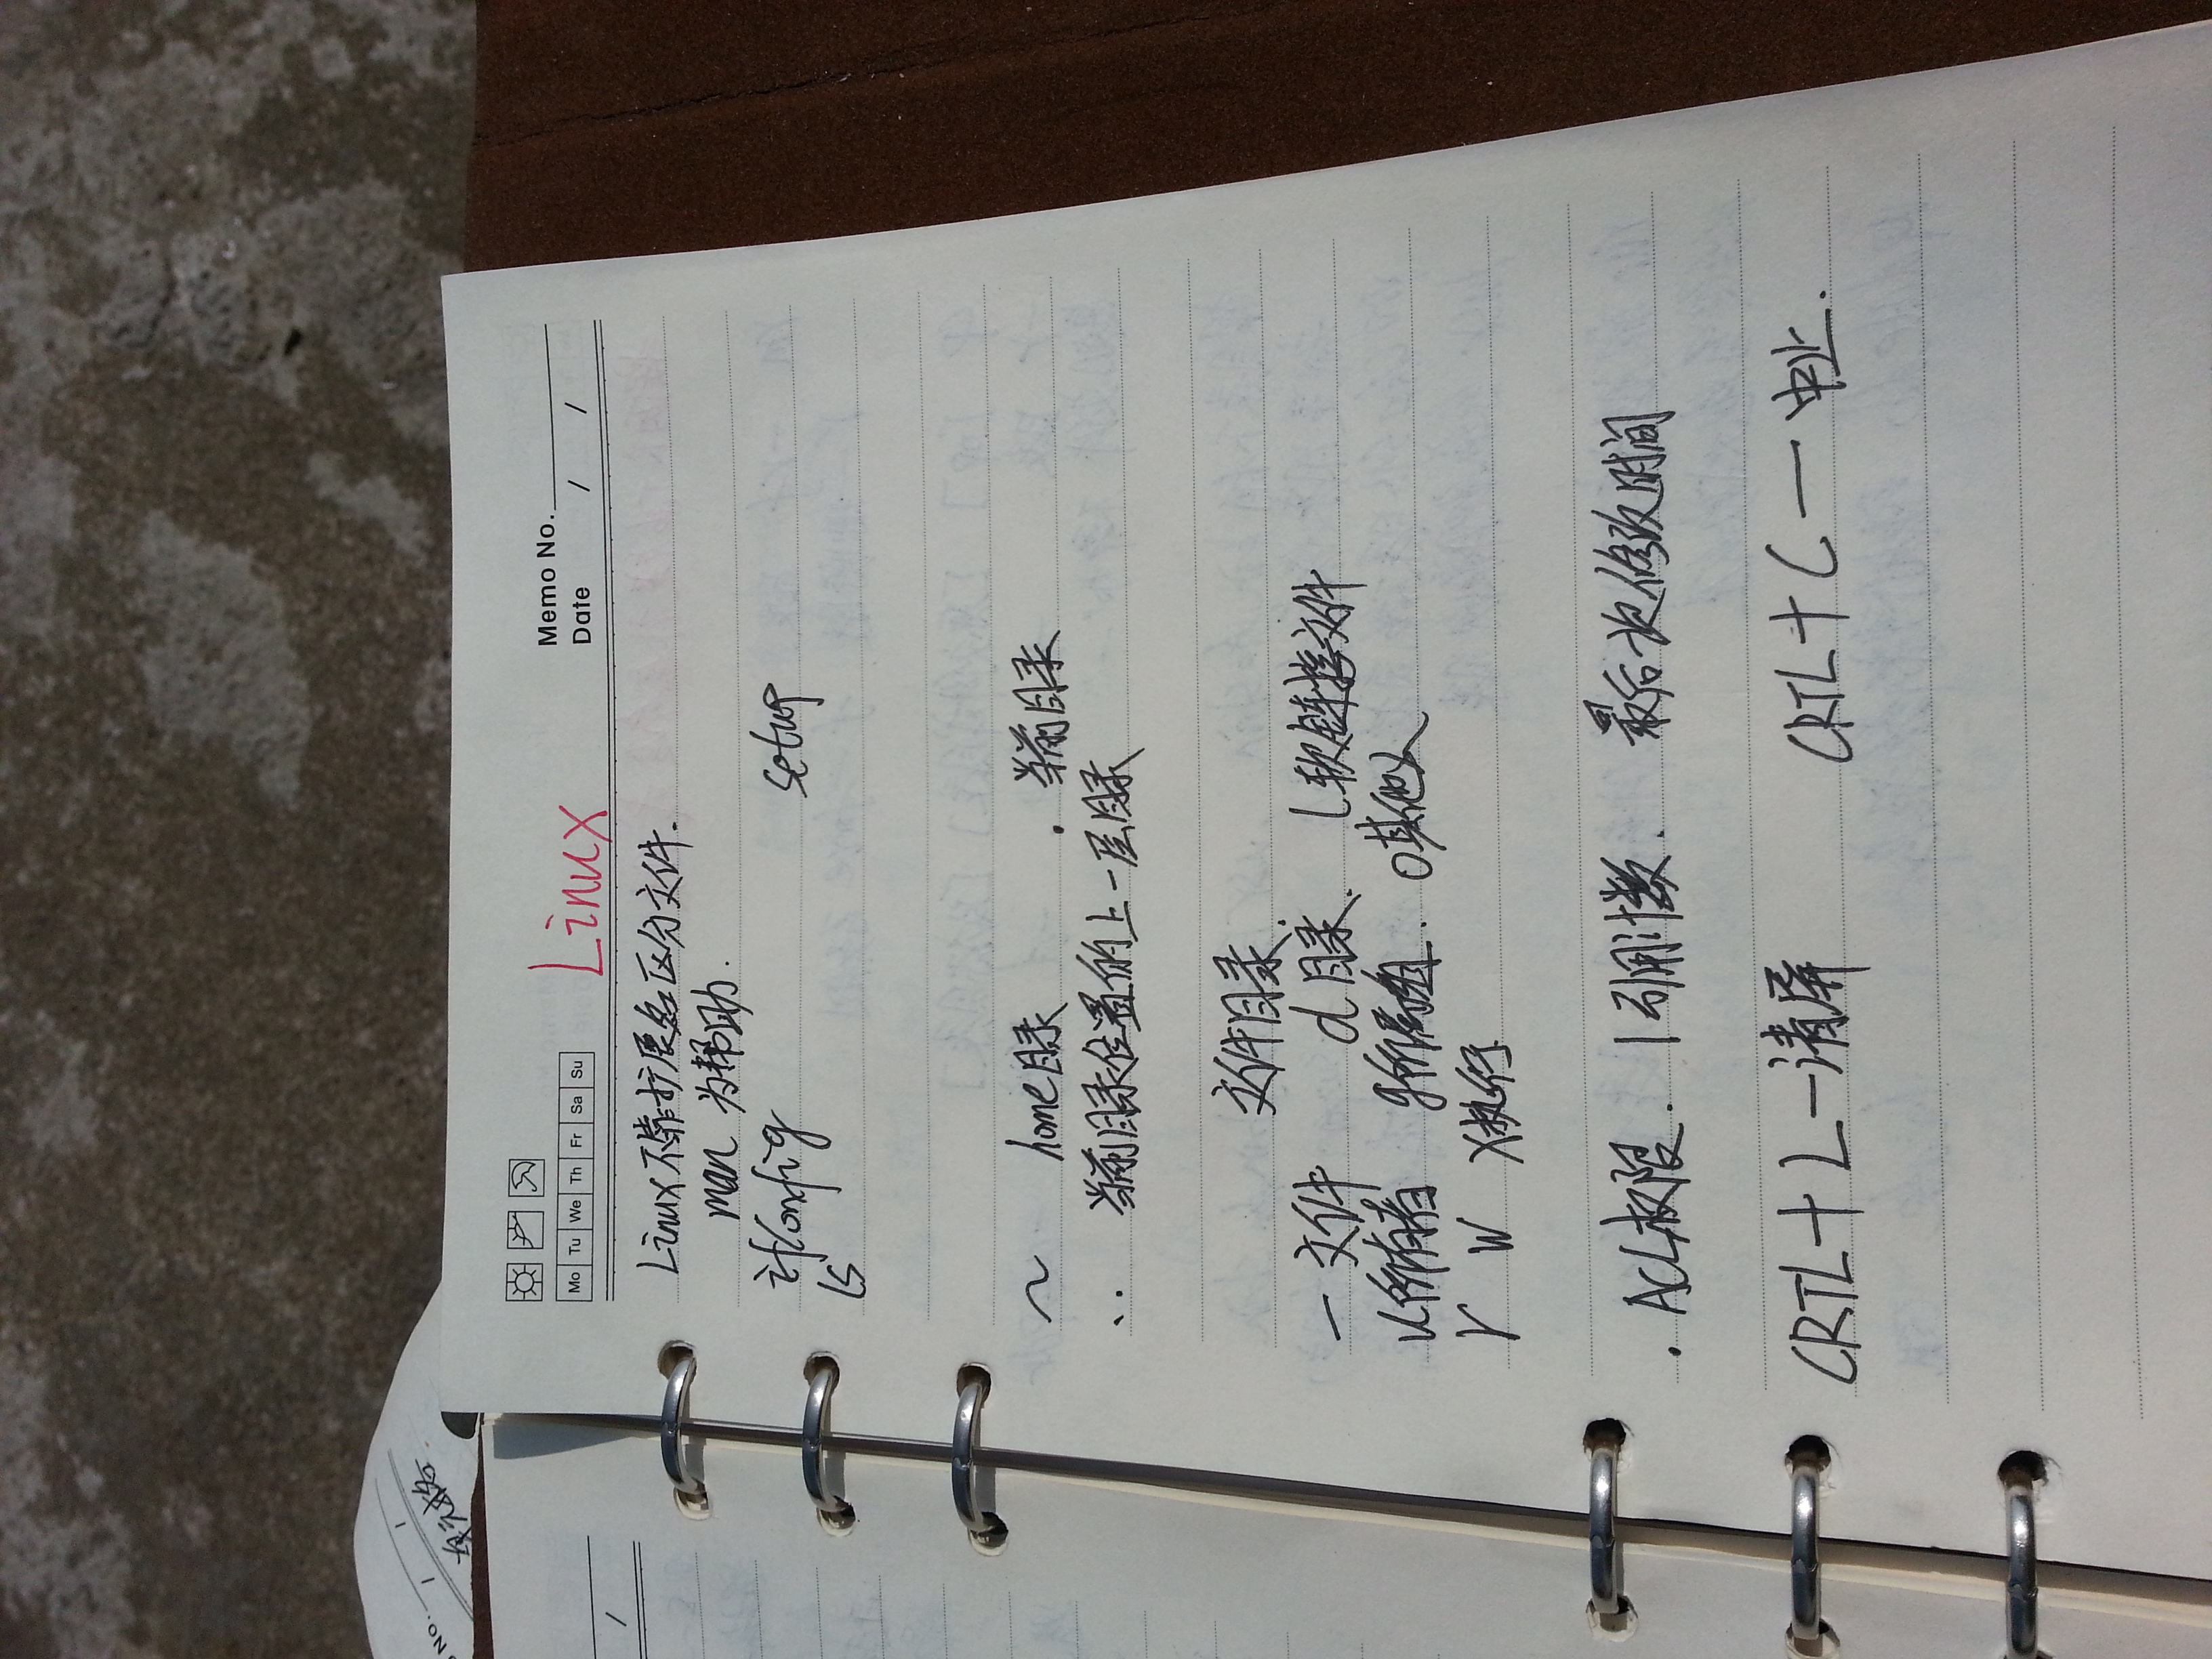 No. / /
单元格
/
Linux
Memo No.
Mo Tu We Th Fr Sa Su
Date / /
Linux不靠扩展名区分文件.
man 为帮助.
ifconfig setup
ls
~ home目录 . 当前目录
.. 当前目录位置的上一层目录
文件目录.
— 文件 d 目录. l 软链接文件
u所有者 g所属组. o其他人
r w x执行
. ACL权限. 1引用计数. 最后一次修改时间
CRTL+L—清屏 CRTL+C—中止.